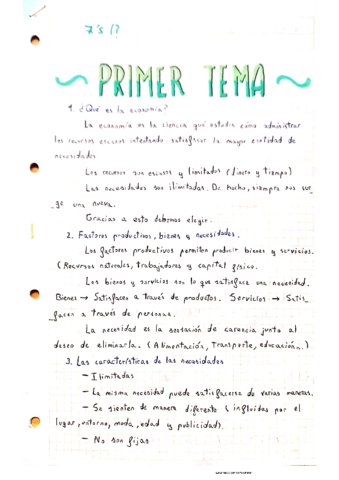 7's !?
PRIMER TEMA
1. ¿Qué es la economía?
La economía es la ciencia que estudia cómo administrar
los recursos escasos intentando satisfacer la mayor cantidad de
necesidades
Los recursos son escasos y limitados (dinero y tiempo)
Las necesidades son ilimitadas. De hecho, siempre nos sur-
ge una nueva.
Gracias a esto debemos elegir.
2. Factores productivos, bienes y necesidades.
Los factores productivos permiten producir bienes y servicios.
(Recursos naturales, trabajadores y capital físico.
Los bienes y servicios son lo que satisface una necesidad.
Bienes → Satisfacen a través de productos. Servicios → Satis-
facen a través de personas.
La necesidad es la sensación de carencia junto al
deseo de eliminarla. (Alimentación, transporte, educación..)
3. Las características de las necesidades
- Ilimitadas
- La misma necesidad puede satisfacerse de varias maneras.
- Se sienten de manera diferente (influidas por el
lugar, entorno, moda, edad y publicidad).
- No son fijas